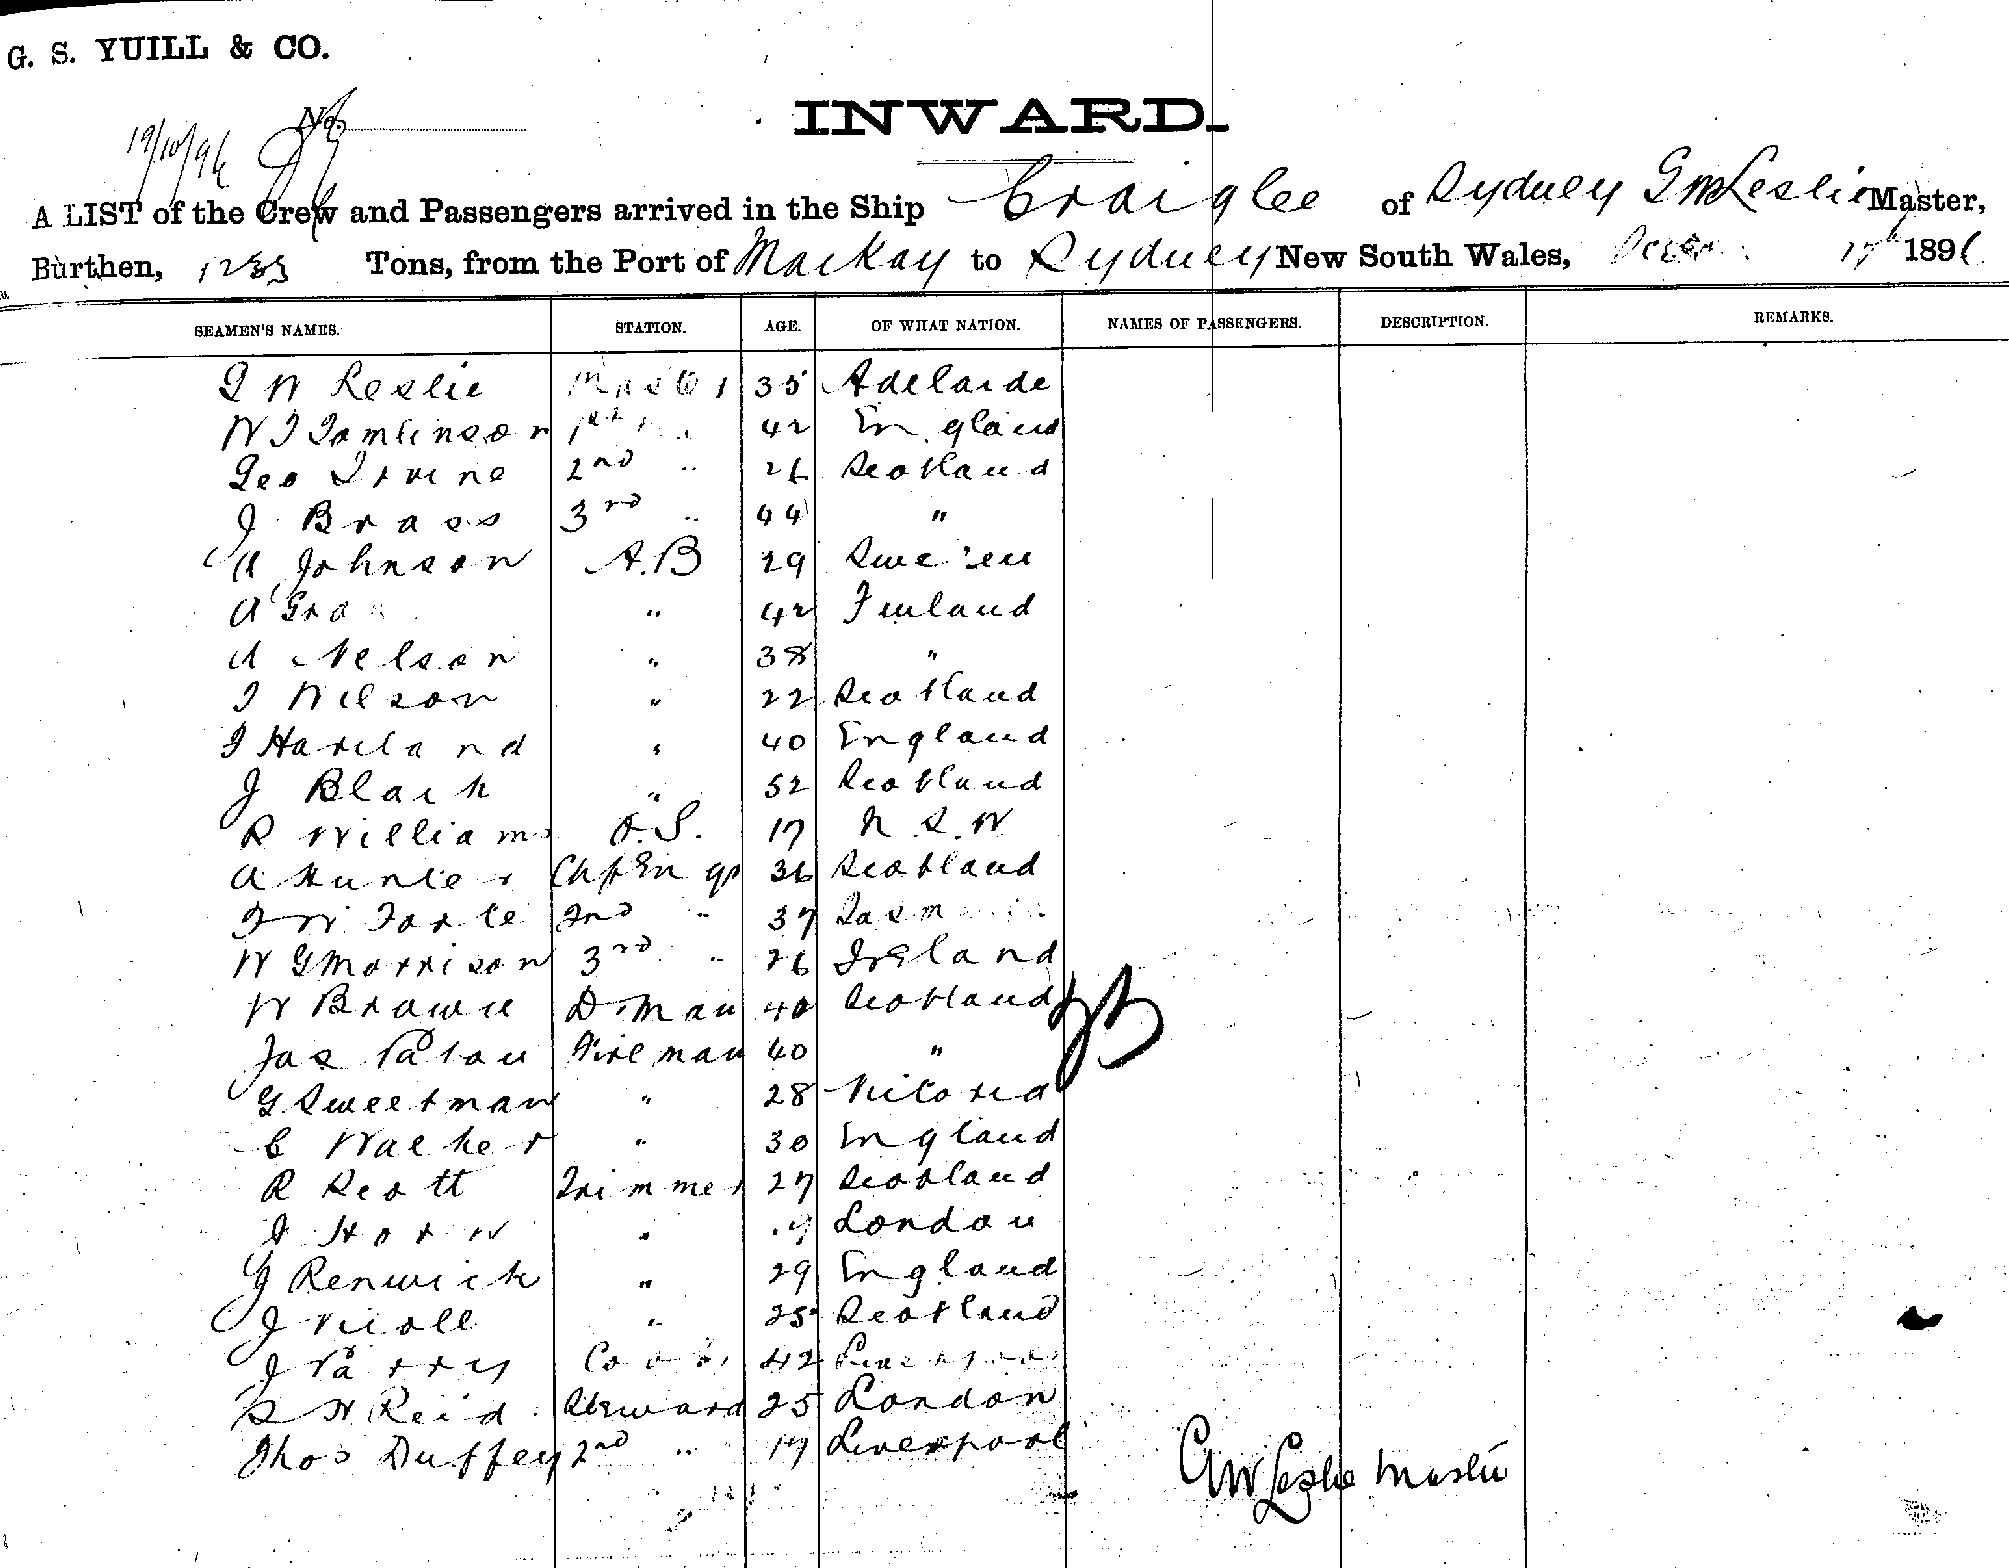 G. S. YUILL & CO.
No.
19/10/96
INWARD.
A LIST of the Crew and Passengers arrived in the Ship Craiglee of Sydney G W Leslie Master,
Burthen, Tons, from the Port of Mackay to Sydney New South Wales, 17th 1896
SEAMEN'S NAMES. STATION. AGE. OF WHAT NATION. NAMES OF PASSENGERS. DESCRIPTION. REMARKS.
G W Leslie Master 35 Adelaide
W J Tomlinson 1st 42 England
Geo Irvine 2nd " 26 Scotland
J Brass 3rd " 44 "
A Johnson A.B 29 Sweden
A " 42 Finland
A Nelson " 38 "
J Wilson " 22 Scotland
J Haviland " 40 England
J Black " 52 Scotland
R Williams O.S. 17 N.S.W
A Hunter Chf Engr 36 Scotland
37
W G Morrison 3rd " 26 Ireland
W Brown D.Man 40 Scotland
Jas Paton Fireman 40 "
G Sweetman " 28 Victoria
C Walker " 30 England
R Scott Trimmer 27 Scotland
J Horn " London
G Renwick " 29 England
J Nicoll " 25 Scotland
J Parry Cook 42 Liverpool
Reid Steward 25 London
Thos Duffey 2nd " 17 Liverpool
GW Leslie Master